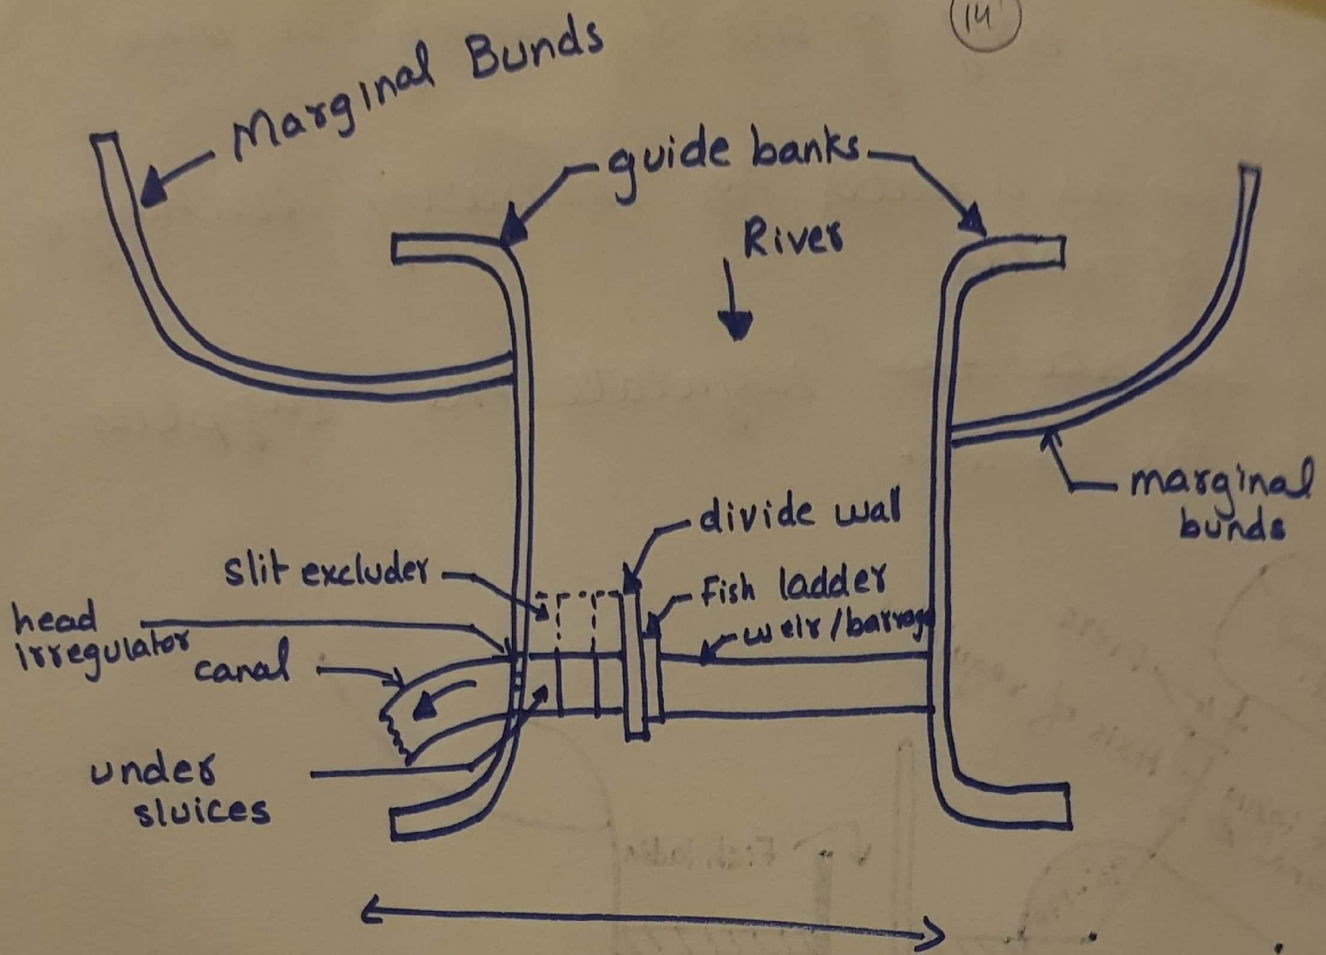 14
Marginal Bunds
guide banks
River
marginal
bunds
divide wal
slit excluder
Fish ladder
weir/barrage
head
irregulator
canal
under
sluices